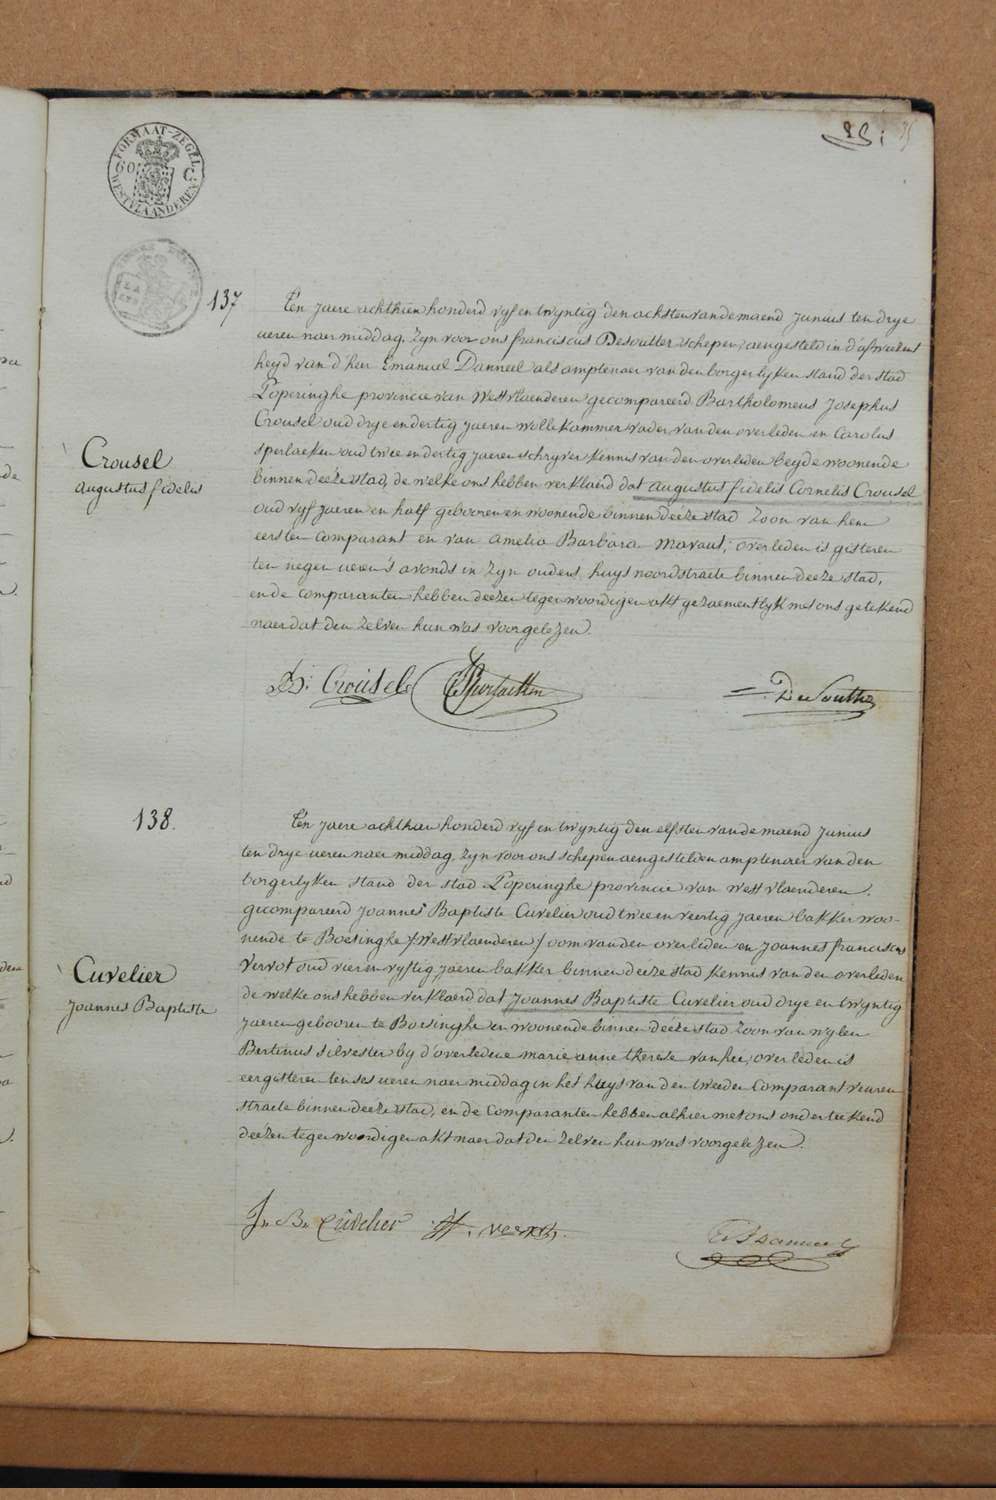 35
FORMAAT-ZEGEL
60 C
WESTVLAANDEREN
137
Ten jaere achthien honderd vyf en twyntig den achsten van de maend Junius ten drye
ueren naer middag, zyn voor ons franciscus Desoutter schepen, aengesteld in d'afweesent
heyd van d'heer Emanuel Danneel als amptenaer van den borgerlyken stand der stad
Poperinghe provincie van Westvlaenderen gecompareerd Bartholomeus Josephus
Crousel oud drye en dertig jaeren wollekammer vader van den overleden en Carolus
Sperlaeken oud twee en dertig jaeren schryver kennis van den overleden beyde woonende
binnen deeze stad, de welke ons hebben verklaerd dat augustus fidelis Cornelis Crousel
oud vyf jaeren en half gebooren en woonende binnen deeze stad zoon van hem
eersten comparant en van amelia Barbara Maraut; overleden is gisteren
ten negen ueren 's avonds in zyn ouders huys noordstraete binnen deeze stad,
en de comparanten hebben deezen tegenwoordigen akt gezaementlyk met ons getekend
naer dat den zelven hun was voorgelezen.
Crousel
augustus fidelis
B: Crousel
Desoutter
138.
Ten jaere achthien honderd vyf en twyntig den elfsten van de maend Junius
ten drye ueren naer middag, zyn voor ons schepen aengestelden amptenaer van den
borgerlyken stand der stad Poperinghe provincie van Westvlaenderen
gecompareerd Joannes Baptiste Cuvelier oud twee en veertig jaeren bakker woo-
nende te Boesinghe /Westvlaenderen/ oom van den overleden en Joannes franciscus
Vervot oud vier en vyftig jaeren bakker binnen deeze stad kennis van den overleden
de welke ons hebben verklaerd dat Joannes Baptiste Cuvelier oud drye en twyntig
jaeren gebooren te Boesinghe en woonende binnen deeze stad zoon van wylen
Bertinus Silvester by d'overledene marie anne therese van hee; overleden is
eergisteren ten ses ueren naer middag in het huys van den tweeden comparant veuren
straete binnen deeze stad, en de comparanten hebben alhier met ons onderteekend
deezen tegenwoordigen akt naer dat den zelven hun was voorgelezen.
Cuvelier
Joannes Baptiste
J. B. Cuvelier